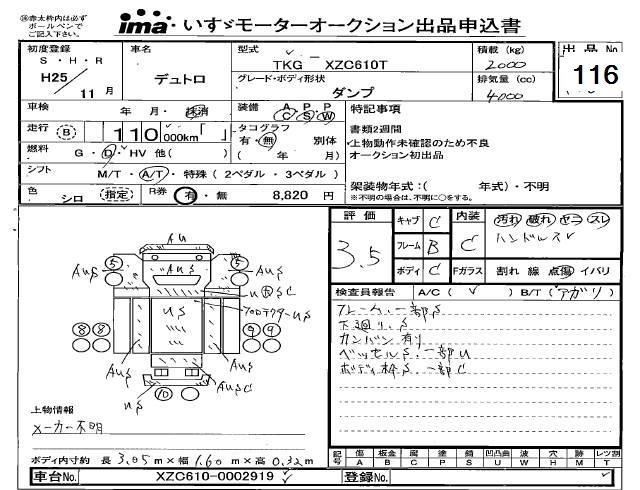 ㊟赤太枠内は必ずボールペンでご記入下さい。
ima いすゞモーターオークション出品申込書
初度登録 S・H・R H25 / 11 月
車名 デュトロ
型式 TKG － XZC610T
積載 (kg) 2000
出品No 116
グレード・ボディ形状 ダンプ
排気量 (cc) 4000
車検 年 月・抹消
装備 A P P C S W
特記事項
走行 B 110 000km「 」
タコグラフ 有・無 別体
( 年 月)
書類2週間
上物動作未確認のため不良
オークション初出品
燃料 G・D・HV 他( )
シフト M/T・A/T・特殊(2ペダル・3ペダル)
架装物年式:( 年式)・不明
※不明の場合は、不明に○をする。
色 シロ (指定)
R券 有・無 8,820 円
評価 3.5
キャブ C
内装 C
汚れ 破れ ヤコ スレ
ハンドルスレ
フレーム B
ボディ C
Fガラス 割れ 線 点傷 イバリ
検査員報告 A/C ( ✓ ) B/T (アガリ)
フレーム、一部S
下廻り、S
カンバン有り
ベッセルS、一部U
ボディ枠S、一部C
AU
5 5
AUS AUS AUS
US
8 8 9 9
AUS AUS
AUSC
US
10
プロテクターUS
上物情報
メーカー不明
ボディ内寸約 長 3.05 m×幅 1.60 m×高 0.32 m
記号 傷 A 板金 B 腐 C 塗 P 錆 S 凹凸曲 U 波 W 穴 H 跡 M レンズ割 T
車台No. XZC610-0002919
登録No.